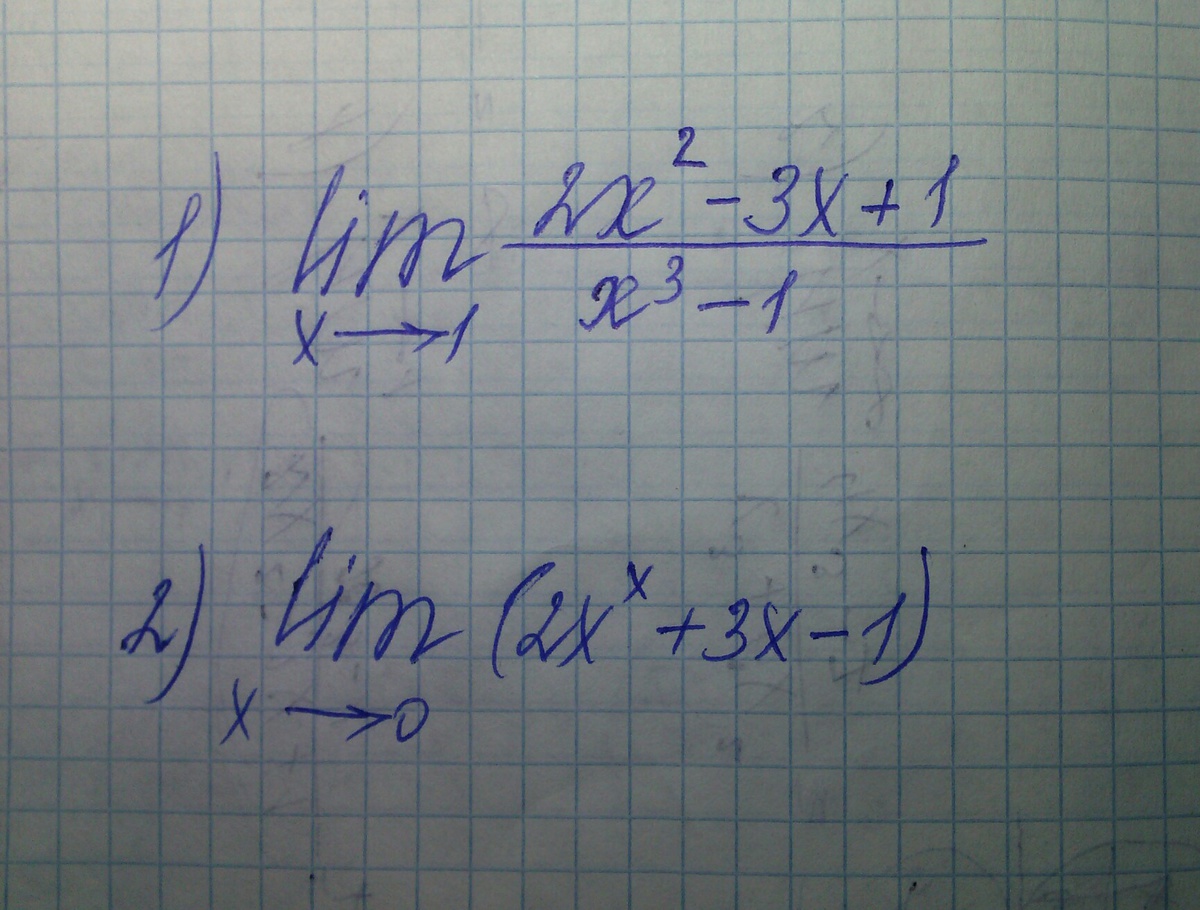 1) lim_{x→1} \frac{2x^2 - 3x + 1}{x^3 - 1}
2) lim_{x→0} (2x^x + 3x - 1)